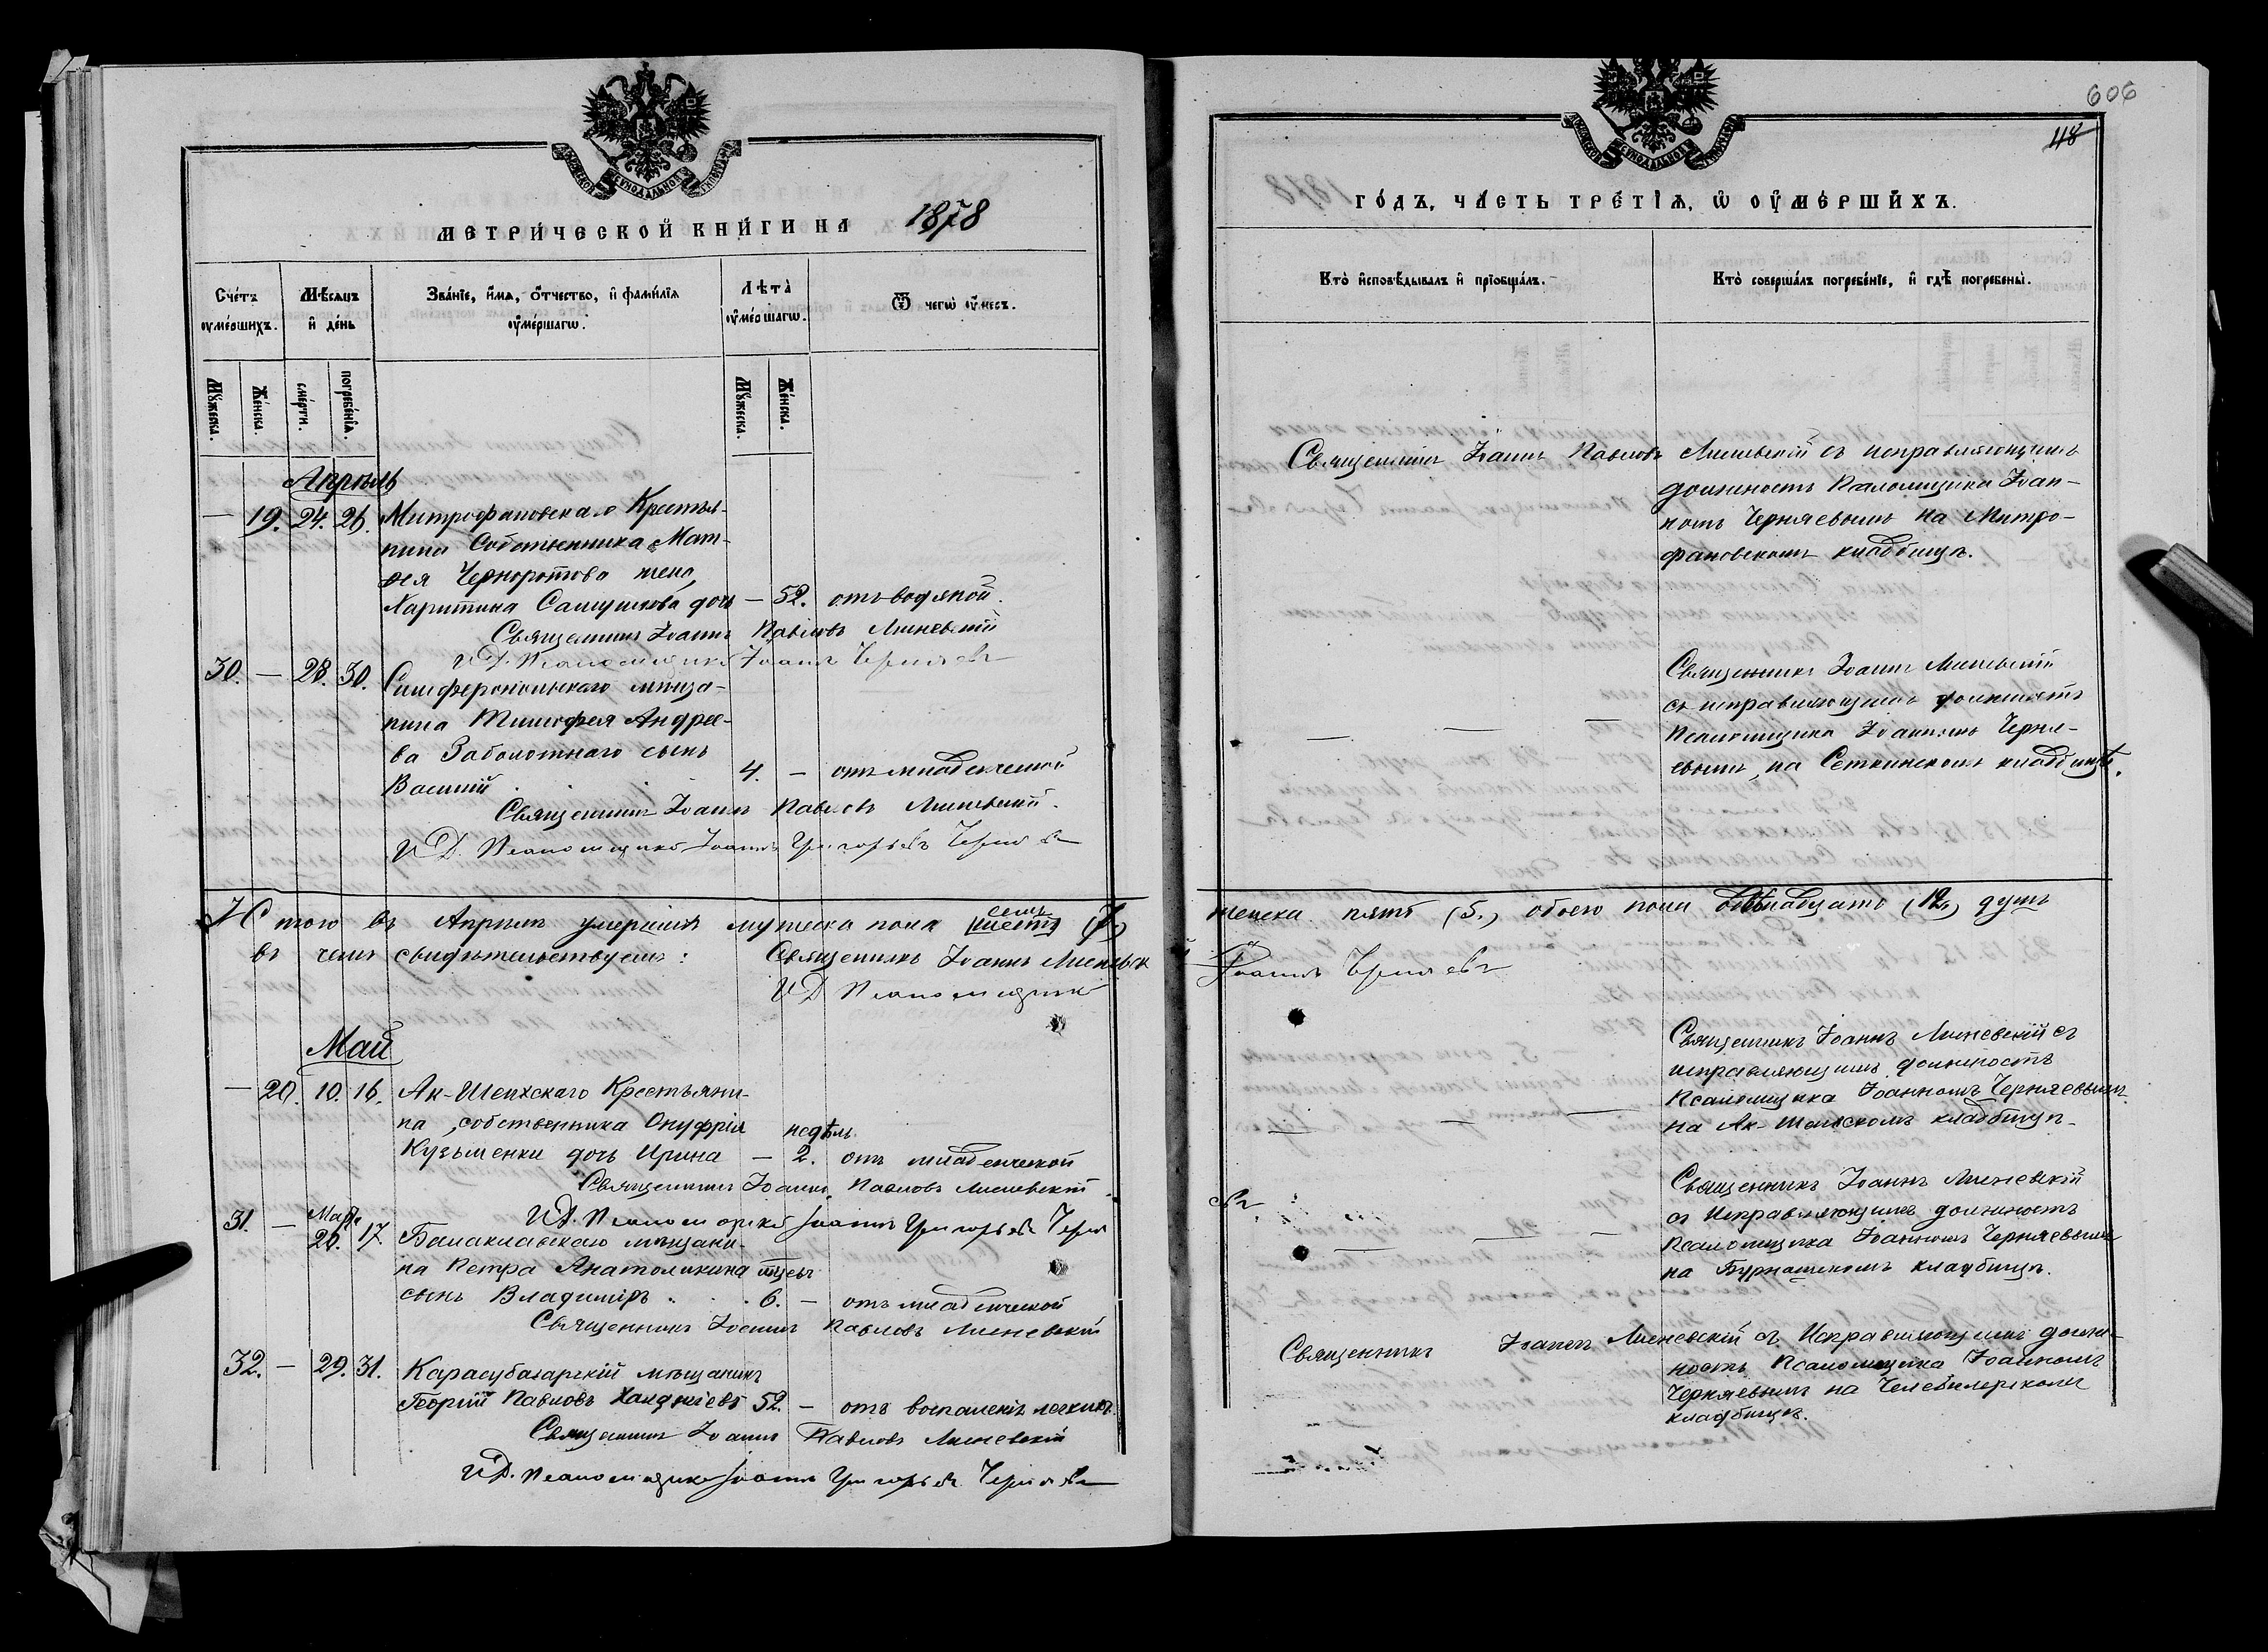 606
118
МЕТРИ́ЧЕСКОЙ КНИ́ГИ НА 1878
ГО́ДЪ, ЧА́СТЬ ТРЕ́ТІѦ, Ѡ ОУМЕ́РШИХЪ.
Сче́тъ оумершихъ.
Мѣсяцъ и де́нь
Зва́нїе, и́мѧ, о́тчество, и фами́лїѧ оуме́ршагѡ.
Лѣта̀ оуме́ршагѡ.
Ѿ чегѡ̀ оу́меръ.
Кто̀ и҆сповѣ́дывалъ и҆ прїобща́лъ.
Кто̀ соверша́лъ погребе́нїе, и҆ гдѣ̀ погребены̀.
Мꙋ́жеска.
Же́нска.
сме́рти.
погребе́нїѧ.
Мꙋ́жеска.
Же́нска.
Апрѣль
— 19. 24. 26. Митрофановскаго Крестья-
нина Собственника Мат-
ѳея Чернороитова жена,
Харитина Самуилова дочь — 52. отъ водяной.
Священникъ Іоаннъ Павловъ Линевскій
И.Д. Псаломщика Іоаннъ Черняевъ
Священникъ Іоаннъ Павловъ Линевскій съ исправляющимъ
должность Псаломщика Іоан-
номъ Черняевымъ на Митро-
фановскомъ кладбищѣ.
30. — 28. 30. Симферопольскаго мѣща-
нина Тимофея Андрее-
ва Заболотнаго сынъ
Василій 4. — отъ младенческой
Священникъ Іоаннъ Павловъ Линевскій.
И.Д. Псаломщика Іоаннъ Григорьевъ Черняевъ
Священникъ Іоаннъ Линевскій
съ исправляющимъ должность
Псаломщика Іоанномъ Черня-
евымъ, на Сеткинскомъ кладбищѣ.
Итого въ Апрѣлѣ умершихъ мужеска пола шесть семь (7.)
женска пять (5.) обоего пола двѣнадцать (12.) душъ
въ чемъ свидѣтельствуемъ: Священникъ Іоаннъ Линевск
И.Д. Псаломщика
Іоаннъ Черняевъ
Май
— 20. 10. 16. Ак-Шеихскаго Крестьяни-
на, собственника Онуфрія недѣль
Кузьменки дочь Ирина — 2. отъ младенческой
Священникъ Іоаннъ Павловъ Линевскій
И.Д. Псаломщика Іоаннъ Григорьевъ Черня
евъ
Священникъ Іоаннъ Линевскій съ
исправляющимъ должность
Псаломщика Іоанномъ Черняевымъ
на Ак-Шеихскомъ кладбищѣ.
31. — 26. 17. Балаклавскаго мѣщани-
на Петра Анатоликина мцевъ
сынъ Владиміръ 6. — отъ младенческой
Священникъ Іоаннъ Павловъ Линевскій
Священникъ Іоаннъ Линевскій
съ Исправляющимъ должность
Псаломщика Іоанномъ Черняевымъ
на Бурнашскомъ кладбищѣ.
32. — 29. 31. Карасубазарскій мѣщанинъ
Георгій Павловъ Халджіевъ 52. — отъ воспаленія легкихъ.
Священникъ Іоаннъ Павловъ Линевскій
И.Д. Псаломщика Іоаннъ Григорьевъ Черняевъ
Священникъ Іоаннъ Линевскій съ Исправляющимъ долж-
ность Псаломщика Іоанномъ
Черняевымъ на Челебилерском
кладбищѣ.